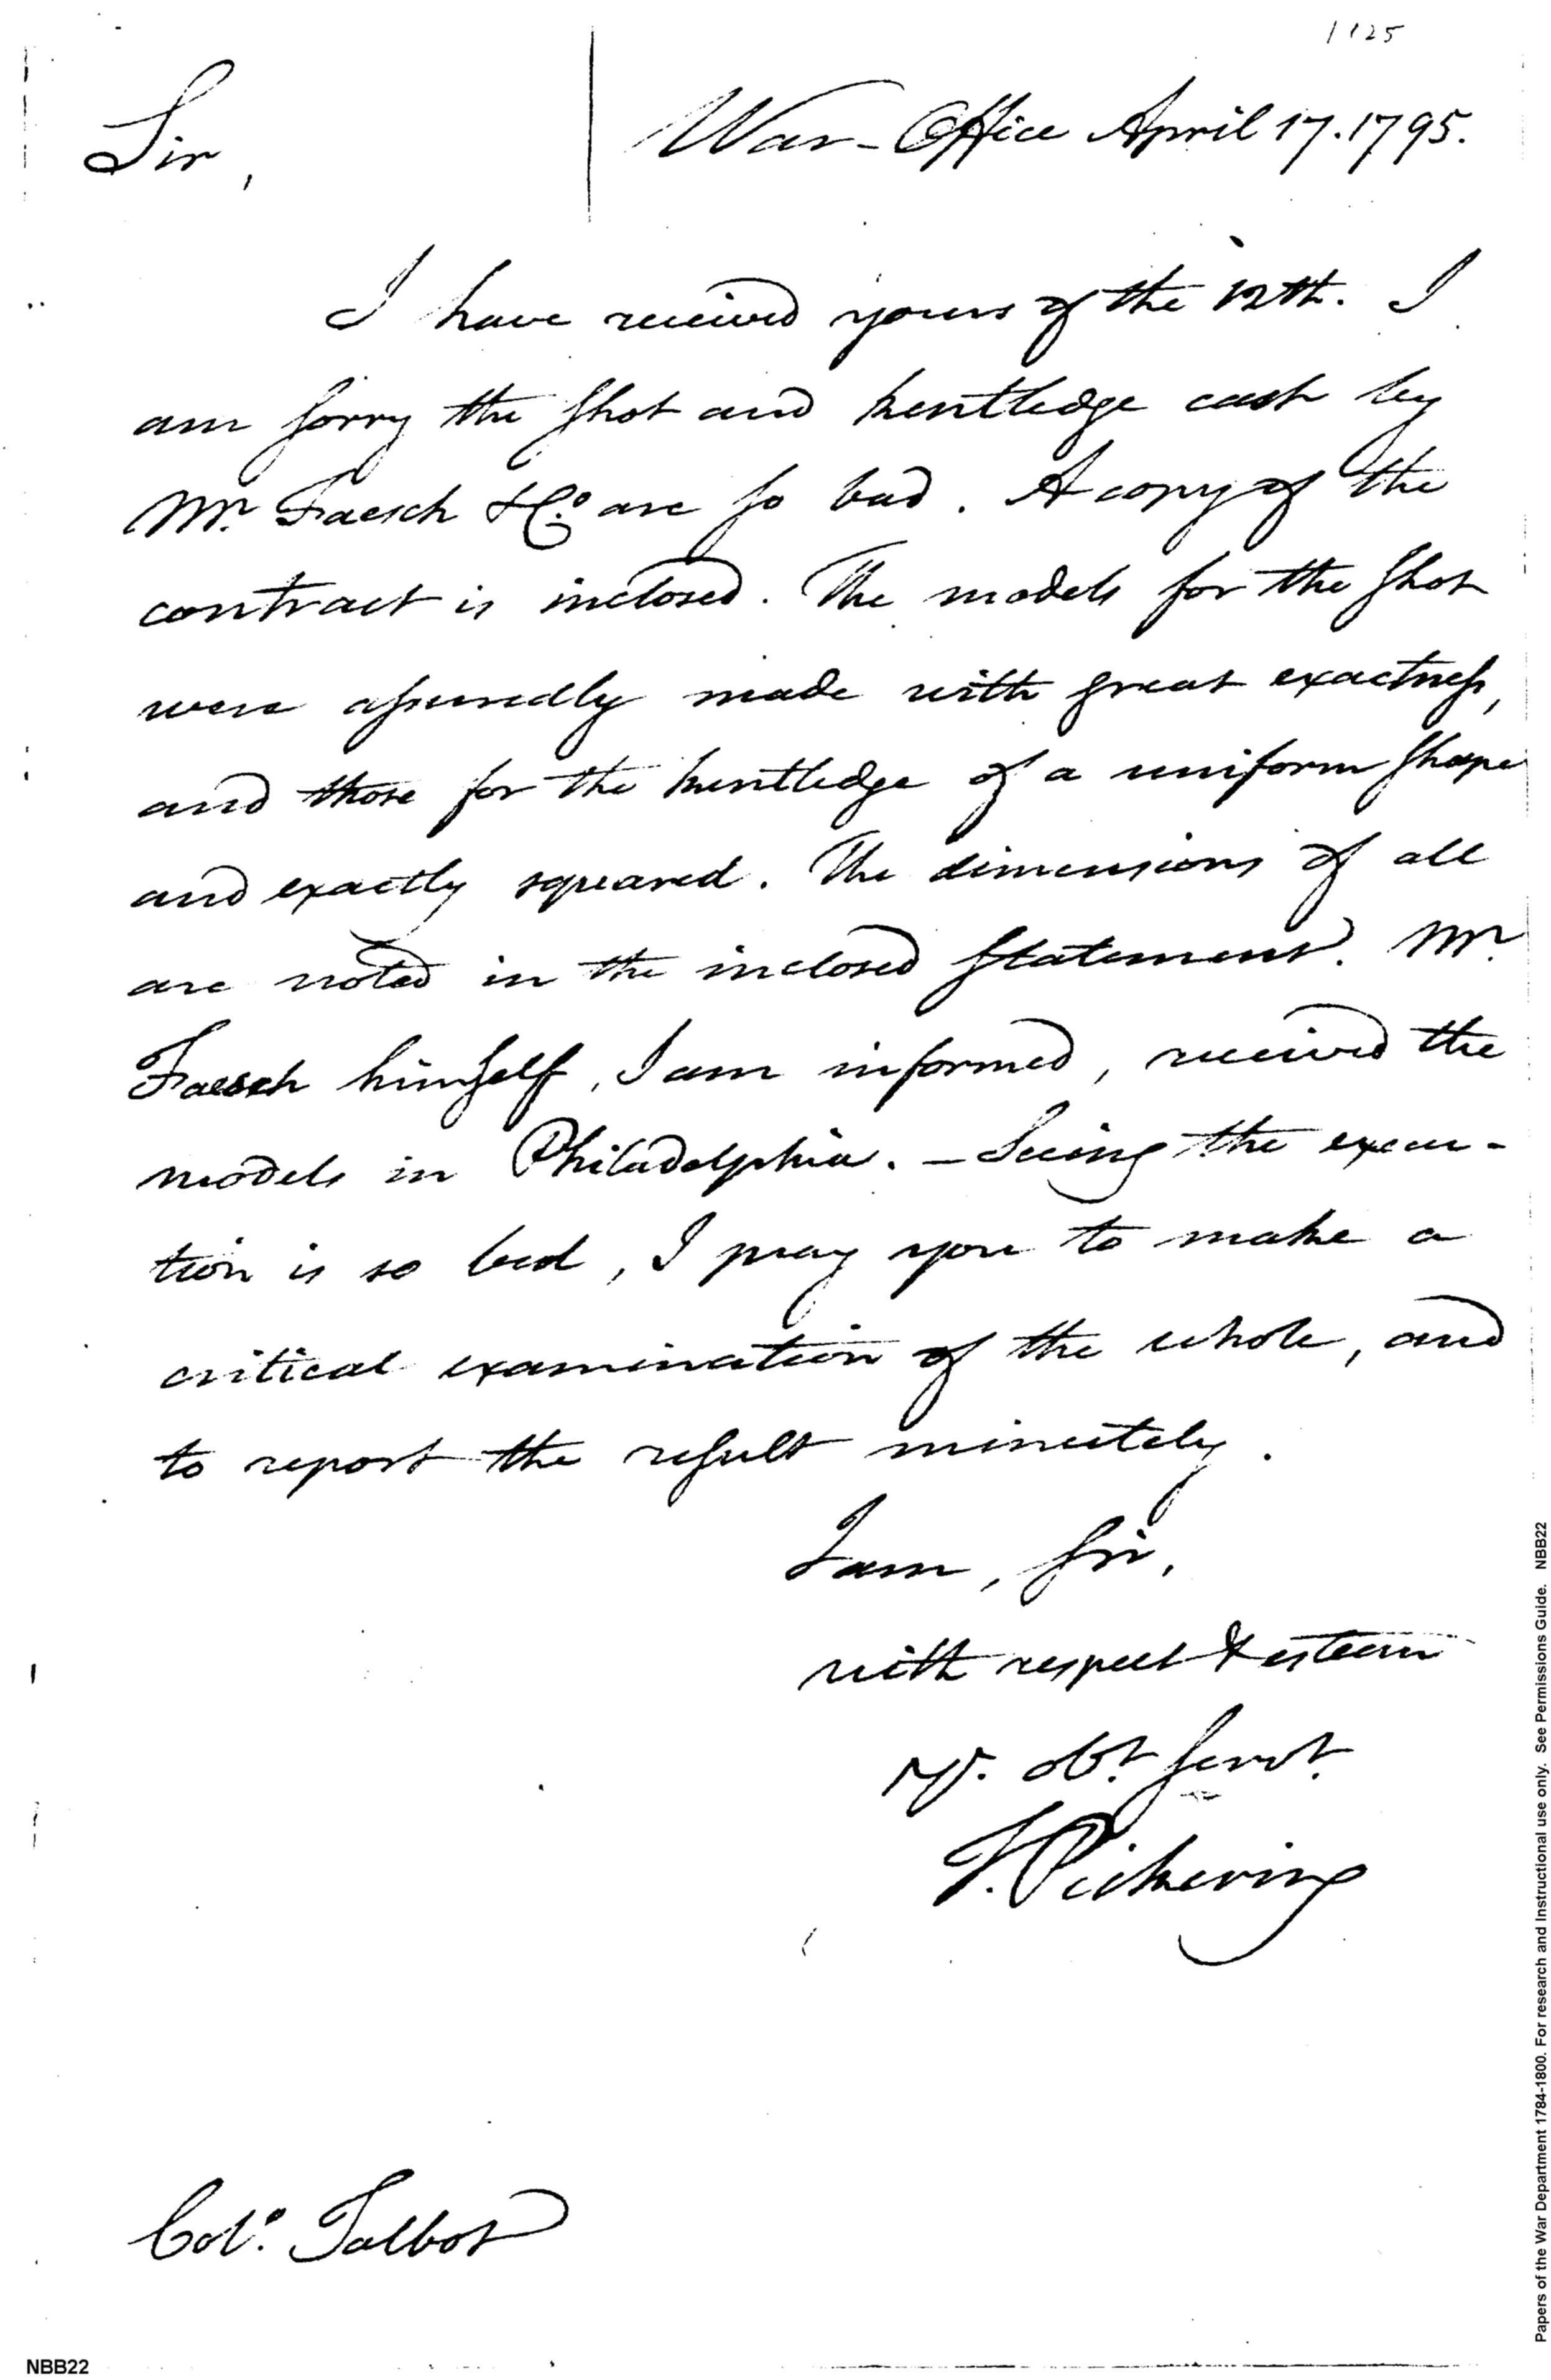 1125
Sir,
War-Office April 17. 1795.
I have received yours of the 12th. I
am sorry the shot and kentledge cast by
Mr. Faesch & Co. are so bad. A copy of the
contract is inclosed. The models for the shot
were assuredly made with great exactness,
and those for the kentledge of a uniform shape
and exactly squared. The dimensions of all
are noted in the inclosed statement. Mr.
Faesch himself, I am informed, received the
models in Philadelphia. – Seeing the execu-
tion is so bad, I pray you to make a
critical examination of the whole, and
to report the result minutely.
I am, sir,
with respect & esteem
yr. obt. servt.
T. Pickering
Colo. Talbot
NBB22
Papers of the War Department 1784-1800. For research and Instructional use only. See Permissions Guide. NBB22